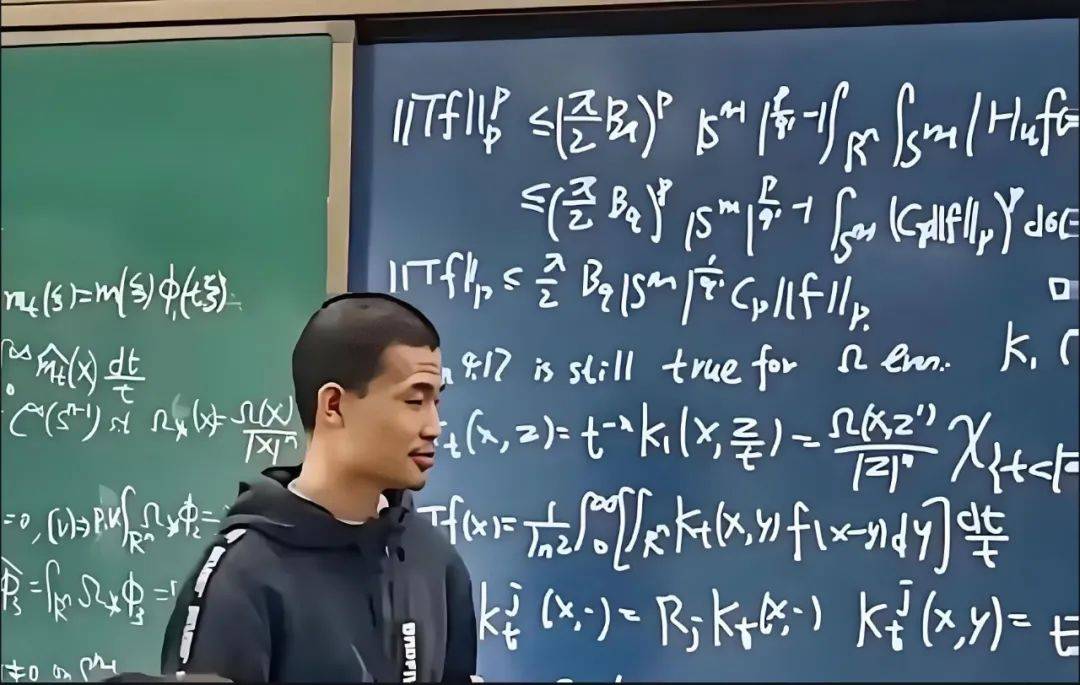 m_t(ξ)=m(ξ)ϕ_1(tξ).
\hat{m_t}(x) dt/t
C^∞(S^{n-1}) s.t Ω_x(x)=Ω(x)/|x|^n
=0, (v)⇒ p.v.∫_{R^n} Ω_xϕ_2=
\hat{ϕ_3}=∫_{R^n} Ω_xϕ_3=
≠0 on
||Tf||_p^p ≤(π/2 B_q)^p |S^m|^{p/q'-1}∫_{R^n}∫_{S^m}|H_uf(
≤(π/2 B_q)^p |S^m|^{p/q'-1}∫_{S^m}(C_p||f||_p)^p dσ(
||Tf||_p ≤ π/2 B_q|S^m|^{1/q'}C_p||f||_p.
4.17 is still true for Ω even. k_1(
_t(x,z)=t^{-n}k_1(x,z/t)=Ω(x,z')/|z|^n χ_{t<|
Tf(x)=1/ln2∫_0^∞[∫_{R^n}k_t(x,y)f(x-y)dy]dt/t
k_t^j(x,·)=R_jk_t(x,·) k_t^j(x,y)=t